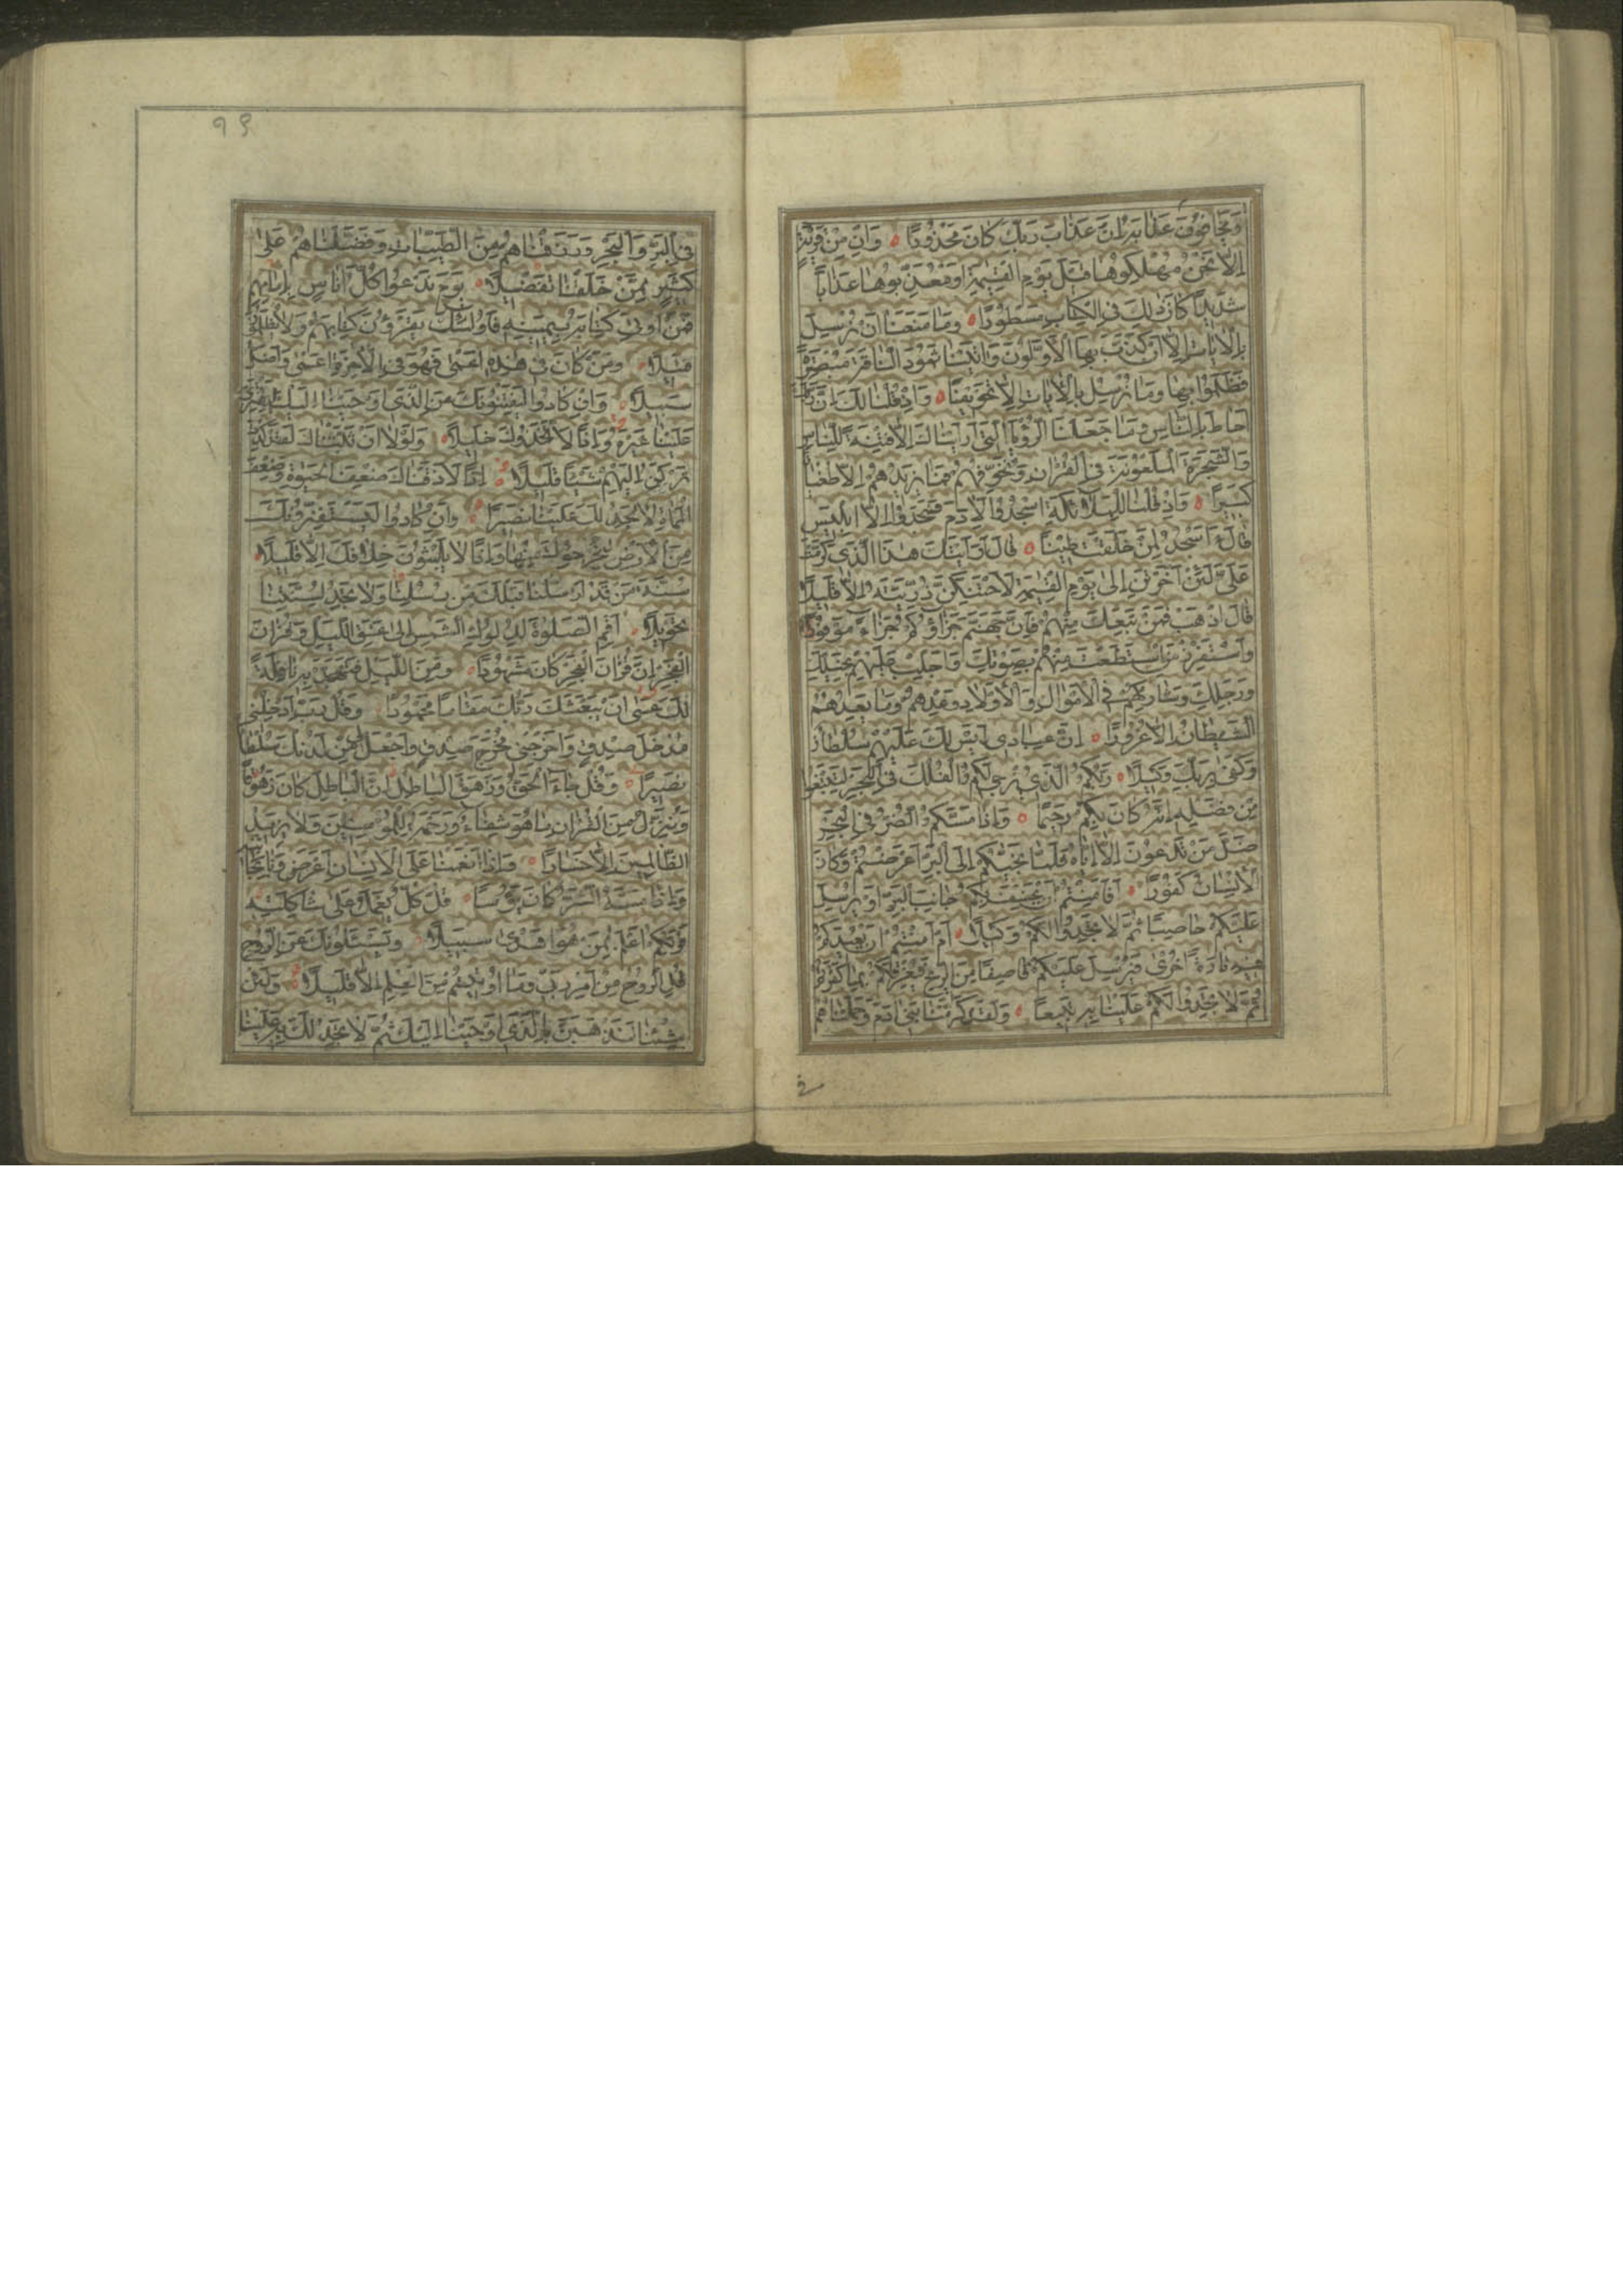 وَيَخَافُونَ عَذَابَهُ اِنَّ عَذَابَ رَبِّكَ كَانَ مَحْذُورًا وَاِنْ مِنْ قَرْيَةٍ
اِلَّا نَحْنُ مُهْلِكُوهَا قَبْلَ يَوْمِ الْقِيٰمَةِ اَوْ مُعَذِّبُوهَا عَذَابًا
شَدِيدًا كَانَ ذٰلِكَ فِي الْكِتَابِ مَسْطُورًا وَمَا مَنَعَنَا اَنْ نُرْسِلَ
بِالْاٰيَاتِ اِلَّا اَنْ كَذَّبَ بِهَا الْاَوَّلُونَ وَاٰتَيْنَا ثَمُودَ النَّاقَةَ مُبْصِرَةً
فَظَلَمُوا بِهَا وَمَا نُرْسِلُ بِالْاٰيَاتِ اِلَّا تَخْوِيفًا وَاِذْ قُلْنَا لَكَ اِنَّ رَبَّكَ
اَحَاطَ بِالنَّاسِ وَمَا جَعَلْنَا الرُّؤْيَا الَّتِي اَرَيْنَاكَ اِلَّا فِتْنَةً لِلنَّاسِ
وَالشَّجَرَةَ الْمَلْعُونَةَ فِي الْقُرْاٰنِ وَنُخَوِّفُهُمْ فَمَا يَزِيدُهُمْ اِلَّا طُغْيَانًا
كَبِيرًا وَاِذْ قُلْنَا لِلْمَلٰٓئِكَةِ اسْجُدُوا لِاٰدَمَ فَسَجَدُوا اِلَّا اِبْلِيسَ
قَالَ ءَاَسْجُدُ لِمَنْ خَلَقْتَ طِينًا قَالَ اَرَاَيْتَكَ هٰذَا الَّذِي كَرَّمْتَ
عَلَيَّ لَئِنْ اَخَّرْتَنِ اِلٰى يَوْمِ الْقِيٰمَةِ لَاَحْتَنِكَنَّ ذُرِّيَّتَهُ اِلَّا قَلِيلًا
قَالَ اذْهَبْ فَمَنْ تَبِعَكَ مِنْهُمْ فَاِنَّ جَهَنَّمَ جَزَاؤُكُمْ جَزَاءً مَوْفُورًا
وَاسْتَفْزِزْ مَنِ اسْتَطَعْتَ مِنْهُمْ بِصَوْتِكَ وَاَجْلِبْ عَلَيْهِمْ بِخَيْلِكَ
وَرَجِلِكَ وَشَارِكْهُمْ فِي الْاَمْوَالِ وَالْاَوْلَادِ وَعِدْهُمْ وَمَا يَعِدُهُمُ
الشَّيْطَانُ اِلَّا غُرُورًا اِنَّ عِبَادِي لَيْسَ لَكَ عَلَيْهِمْ سُلْطَانٌ
وَكَفٰى بِرَبِّكَ وَكِيلًا رَبُّكُمُ الَّذِي يُزْجِي لَكُمُ الْفُلْكَ فِي الْبَحْرِ لِتَبْتَغُوا
مِنْ فَضْلِهِ اِنَّهُ كَانَ بِكُمْ رَحِيمًا وَاِذَا مَسَّكُمُ الضُّرُّ فِي الْبَحْرِ
ضَلَّ مَنْ تَدْعُونَ اِلَّا اِيَّاهُ فَلَمَّا نَجّٰيكُمْ اِلَى الْبَرِّ اَعْرَضْتُمْ وَكَانَ
الْاِنْسَانُ كَفُورًا اَفَاَمِنْتُمْ اَنْ يَخْسِفَ بِكُمْ جَانِبَ الْبَرِّ اَوْ يُرْسِلَ
عَلَيْكُمْ حَاصِبًا ثُمَّ لَا تَجِدُوا لَكُمْ وَكِيلًا اَمْ اَمِنْتُمْ اَنْ يُعِيدَكُمْ
فِيهِ تَارَةً اُخْرٰى فَيُرْسِلَ عَلَيْكُمْ قَاصِفًا مِنَ الرِّيحِ فَيُغْرِقَكُمْ بِمَا كَفَرْتُمْ
ثُمَّ لَا تَجِدُوا لَكُمْ عَلَيْنَا بِهِ تَبِيعًا وَلَقَدْ كَرَّمْنَا بَنِي اٰدَمَ وَحَمَلْنَاهُمْ
في
٩٩
فِي الْبَرِّ وَالْبَحْرِ وَرَزَقْنَاهُمْ مِنَ الطَّيِّبَاتِ وَفَضَّلْنَاهُمْ عَلٰى
كَثِيرٍ مِمَّنْ خَلَقْنَا تَفْضِيلًا يَوْمَ نَدْعُوا كُلَّ اُنَاسٍ بِاِمَامِهِمْ
فَمَنْ اُوتِيَ كِتَابَهُ بِيَمِينِهِ فَاُولٰٓئِكَ يَقْرَؤُنَ كِتَابَهُمْ وَلَا يُظْلَمُونَ
فَتِيلًا وَمَنْ كَانَ فِي هٰذِهِ اَعْمٰى فَهُوَ فِي الْاٰخِرَةِ اَعْمٰى وَاَضَلُّ
سَبِيلًا وَاِنْ كَادُوا لَيَفْتِنُونَكَ عَنِ الَّذِي اَوْحَيْنَا اِلَيْكَ لِتَفْتَرِيَ
عَلَيْنَا غَيْرَهُ وَاِذًا لَاتَّخَذُوكَ خَلِيلًا وَلَوْلَا اَنْ ثَبَّتْنَاكَ لَقَدْ كِدْتَ
تَرْكَنُ اِلَيْهِمْ شَيْئًا قَلِيلًا اِذًا لَاَذَقْنَاكَ ضِعْفَ الْحَيٰوةِ وَضِعْفَ
الْمَمَاتِ ثُمَّ لَا تَجِدُ لَكَ عَلَيْنَا نَصِيرًا وَاِنْ كَادُوا لَيَسْتَفِزُّونَكَ
مِنَ الْاَرْضِ لِيُخْرِجُوكَ مِنْهَا وَاِذًا لَا يَلْبَثُونَ خِلَافَكَ اِلَّا قَلِيلًا
سُنَّةَ مَنْ قَدْ اَرْسَلْنَا قَبْلَكَ مِنْ رُسُلِنَا وَلَا تَجِدُ لِسُنَّتِنَا
تَحْوِيلًا اَقِمِ الصَّلٰوةَ لِدُلُوكِ الشَّمْسِ اِلٰى غَسَقِ اللَّيْلِ وَقُرْاٰنَ
الْفَجْرِ اِنَّ قُرْاٰنَ الْفَجْرِ كَانَ مَشْهُودًا وَمِنَ اللَّيْلِ فَتَهَجَّدْ بِهِ نَافِلَةً
لَكَ عَسٰى اَنْ يَبْعَثَكَ رَبُّكَ مَقَامًا مَحْمُودًا وَقُلْ رَبِّ اَدْخِلْنِي
مُدْخَلَ صِدْقٍ وَاَخْرِجْنِي مُخْرَجَ صِدْقٍ وَاجْعَلْ لِي مِنْ لَدُنْكَ سُلْطَانًا
نَصِيرًا وَقُلْ جَاءَ الْحَقُّ وَزَهَقَ الْبَاطِلُ اِنَّ الْبَاطِلَ كَانَ زَهُوقًا
وَنُنَزِّلُ مِنَ الْقُرْاٰنِ مَا هُوَ شِفَاءٌ وَرَحْمَةٌ لِلْمُؤْمِنِينَ وَلَا يَزِيدُ
الظَّالِمِينَ اِلَّا خَسَارًا وَاِذَا اَنْعَمْنَا عَلَى الْاِنْسَانِ اَعْرَضَ وَنَاٰ بِجَانِبِهِ
وَاِذَا مَسَّهُ الشَّرُّ كَانَ يَؤُسًا قُلْ كُلٌّ يَعْمَلُ عَلٰى شَاكِلَتِهِ
فَرَبُّكُمْ اَعْلَمُ بِمَنْ هُوَ اَهْدٰى سَبِيلًا وَيَسْئَلُونَكَ عَنِ الرُّوحِ
قُلِ الرُّوحُ مِنْ اَمْرِ رَبِّي وَمَا اُوتِيتُمْ مِنَ الْعِلْمِ اِلَّا قَلِيلًا وَلَئِنْ
شِئْنَا لَنَذْهَبَنَّ بِالَّذِي اَوْحَيْنَا اِلَيْكَ ثُمَّ لَا تَجِدُ لَكَ بِهِ عَلَيْنَا